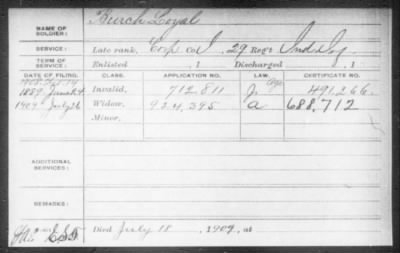 NAME OF SOLDIER: Burch Loyal
SERVICE: Late rank, Corp Co I, 29 Reg't Ind. Inf
TERM OF SERVICE: Enlisted , 1 Discharged , 1
DATE OF FILING. CLASS. APPLICATION NO. LAW. CERTIFICATE NO.
1889 June 4 Invalid, 712.811 J. 491.266
1909 July 26 Widow, 924,395 a 688,712
Minor,
ADDITIONAL SERVICES:
REMARKS:
Died July 18 , 1909, at